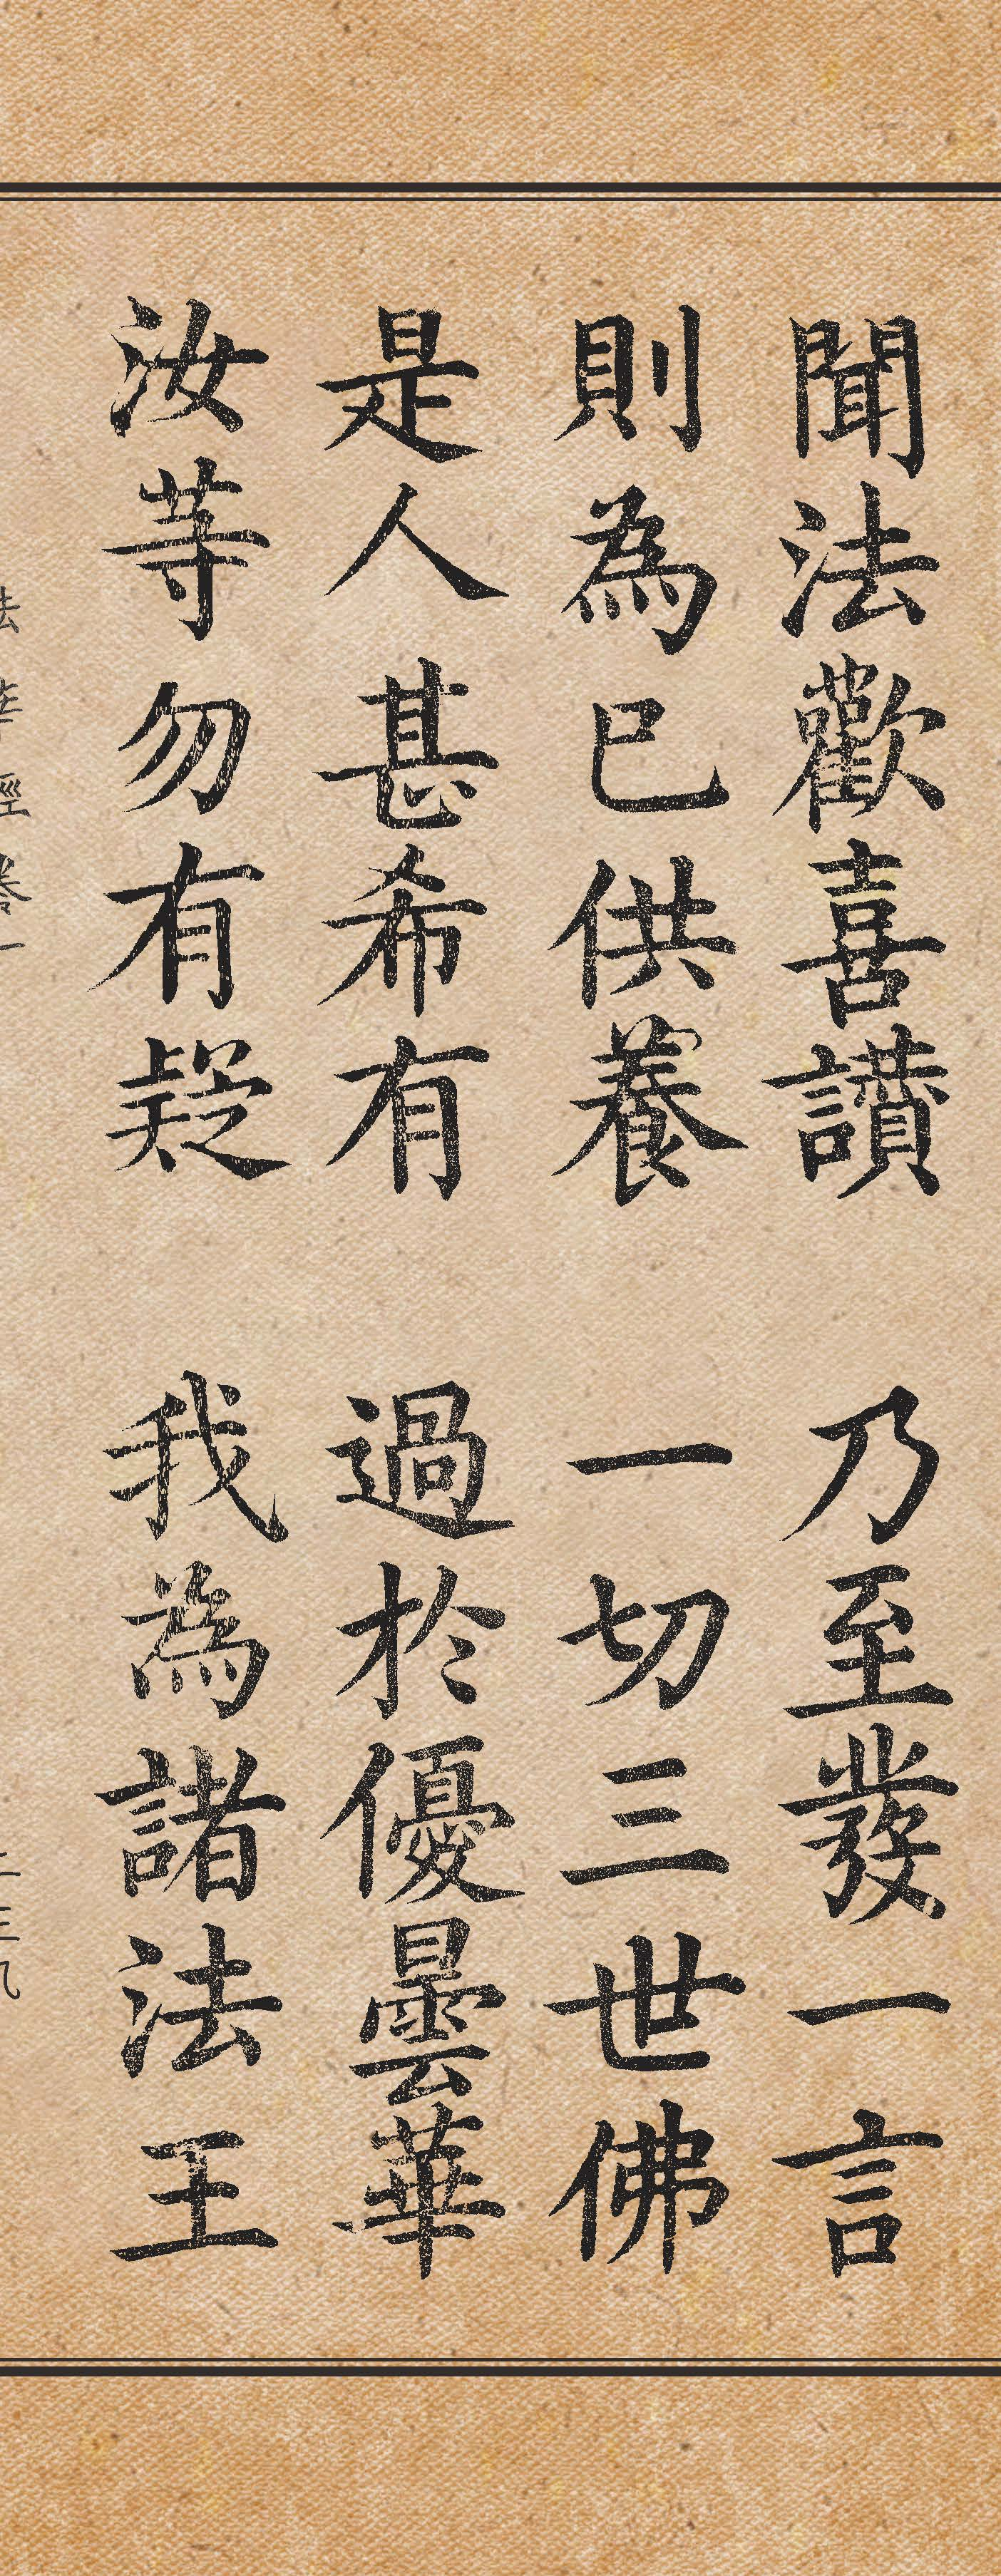 聞法歡喜讚 乃至發一言
則為已供養 一切三世佛
是人甚希有 過於優曇華
汝等勿有疑 我為諸法王
法華經卷一